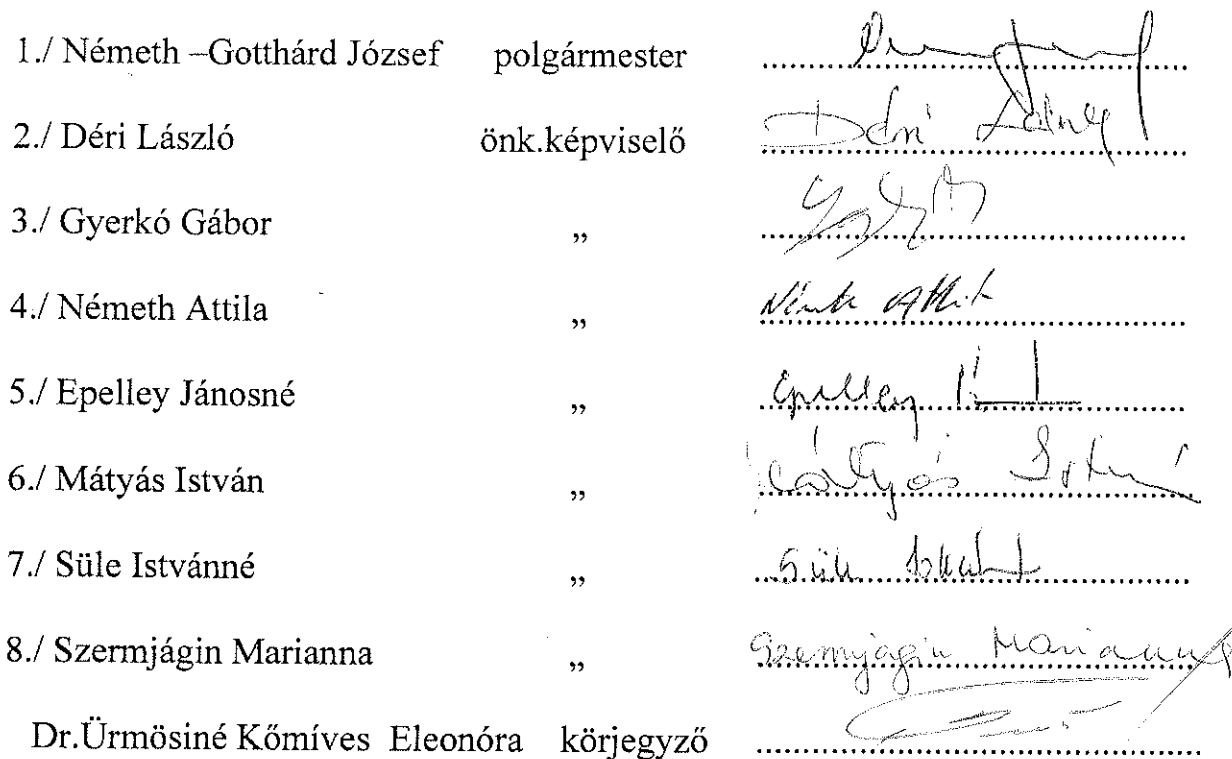 1./ Németh –Gotthárd József polgármester ..............................
2./ Déri László önk.képviselő Déri László
3./ Gyerkó Gábor „ ..............................
4./ Németh Attila „ Németh Attila
5./ Epelley Jánosné „ Epelley
6./ Mátyás István „ Mátyás István
7./ Süle Istvánné „ Süle
8./ Szermjágin Marianna „ Szermjágin Marianna
Dr.Ürmösiné Kőmíves Eleonóra körjegyző ..............................